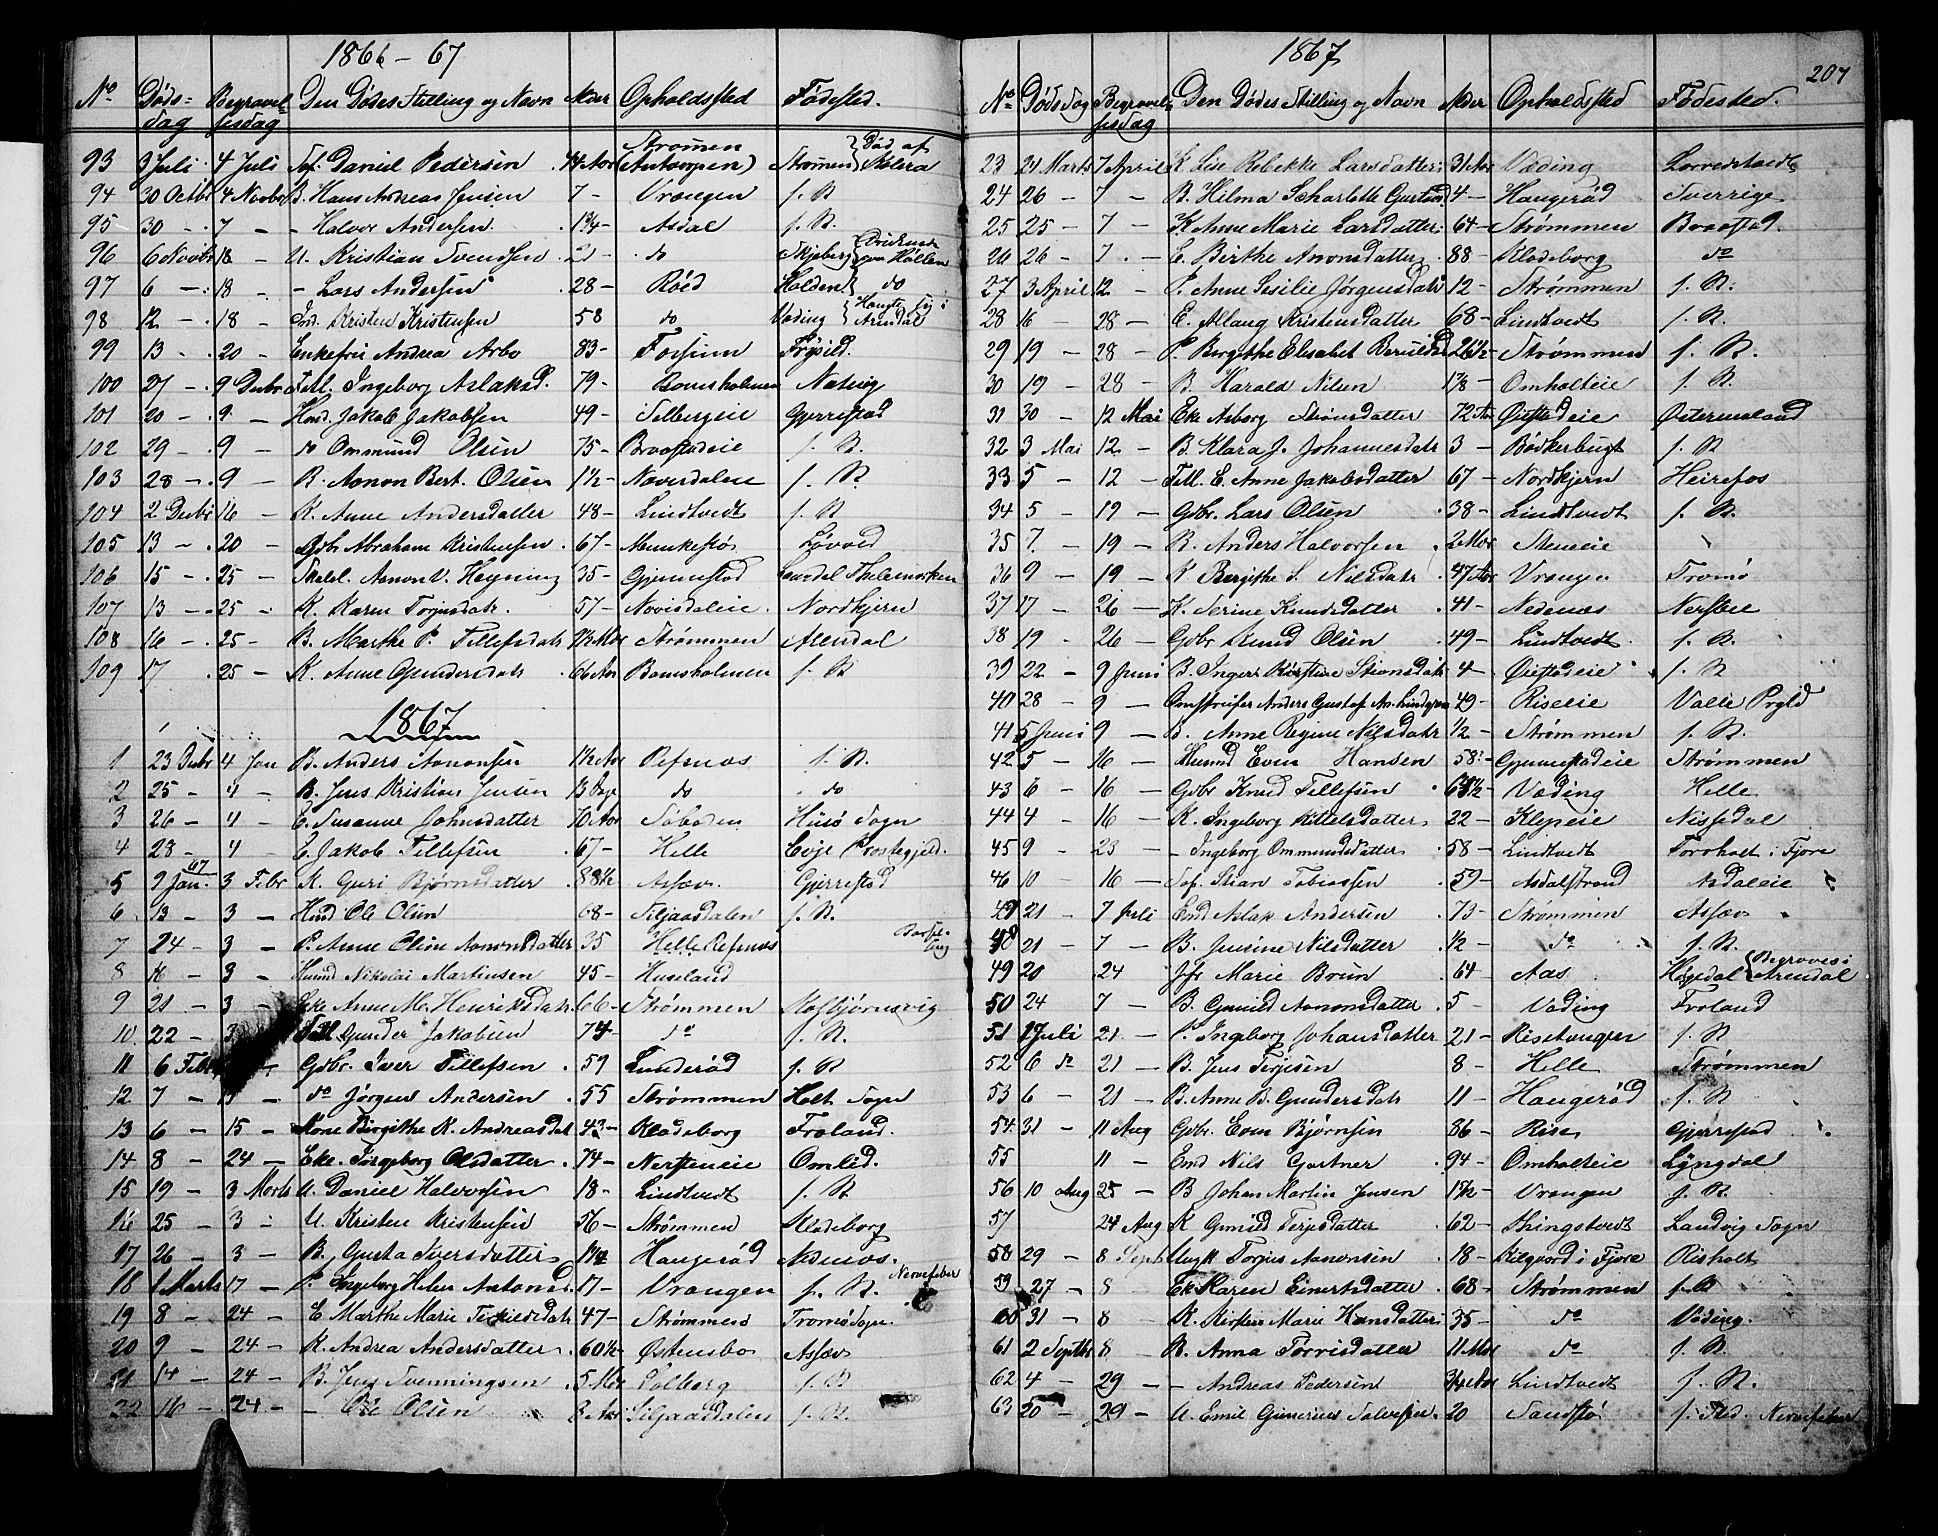 1866 - 67
No Döds- dag Begravel- sesdag Den Dödes Stilling og Navn Alder Opholdssted Födested.
93 3 Juli 4 Juli Daniel Pedersen Aar Strömen (Antwerpen) Strömen Död af Kolera
94 30 Octbr 4 Novbr B. Hans Andreas Jensen 7 - Vrængen f. St.
95 30 - 7 - - Halvor Andersen 1¾ - Asdal f. St.
96 6 Novbr 18 - U. Kristian Svendsen - do Skjeberg
97 6 - 18 - - Lars Andersen 28 - Röed Halden do
98 12 - 18 - Kristen Kristensen 58 do Vading Arendal
99 13 - 20 - Enkefru Andrea Arbo 83 - Fossum
100 27 - 9 Decbr Fttl. Ingeborg Aslaksd. 79 - Bomsholmen Natvig
101 20 - 9 - Hmd. Jakob Jakobsen 49 - Selbergeie Gjerrestad
102 29 - 9 - do Ommund Olsen 75 - Braastadeie f. St.
103 28 - 9 - B. Aanon Bert. Olsen 1½ - f. St.
104 2 Decbr 16 - K. Anne Andersdatter 48 - Lindtvedt f. St
105 13 - 20 - Gdbr Abraham Kristensen 67 - Munkestö Lövold
106 15 - 25 - Aanon V. Heyning 35 - Gjennestad
107 13 - 25 - K. Karen Torjusdatr. 57 - Nordkjern
108 16 - 25 - B. Marthe P. Tellefsdatr Strömmen Arendal
109 17 25 - K. Anne Gundersdatr 66 Aar Bomsholmen f. St
1867
1 23 Decbr 4 Jan B. Anders Aanonsen 1½ Aar Refnes f. St.
2 25 - 4 - B. Jens Kristian Jensen do do
3 26 - 4 - E. Susanne Johnsdatter 70 Aar Söboden Hisö Sogn
4 28 - 4 - E. Jakob Tellefsen 67 - Helle Evje Prestegjeld.
5 9 Jan. 67 3 Febr K. Guri Björnsdatter 88½ Assæv Gjerrestad
6 13 - 3 - Hmd Ole Olsen 68 - Siljaasdalen f. St.
7 24 - 3 - P. Anne Oline Aanonsdatter 35 Helle Refnes Barsel- seng
8 16 - 3 - Nikolai Martinsen 45 - Huseland
9 21 - 3 - Eke Anne M. Henriksdatr 66 - Strömmen Kolbjörnsvig
10 22 - 3 Gunder Jakobsen 74 - do f. St.
11 6 Febr Gdbr. Iver Tellefsen 59 Lunderöd f. St
12 7 - - do Jörgen Andersen 55 Strömmen Holt Sogn
13 6 - 15 - Kone Birgithe K. Andreasdat 43 - Klodeborg Froland.
14 8 - 24 - Eke. Ingeborg Olsdatter 74 - Nersteneie Omlid.
15 19 - 3 Marts U. Daniel Halvorsen 18 - Lindtvedt f. St.
16 25 - 3 - U. Kristen Kristensen 56 - Strömmen Klodeborg
17 26 - 3 - B. Gusta Iversdatter Haugeröd Nedenes.
18 1 Marts 17 - P. Ingeborg Helen Antonsd 17 - Vrængen f. St. Nervefeber
19 8 - 24 - E Marthe Marie Terkildsdatr 47 - Strömmen Tromö Sogn.
20 9 - 24 - K. Andrea Andersdatter 60½ - Östensbo Assæv
21 14 - 24 - B. Jens Svenningsen 5 Mdr Solborg f. St
22 16 - 24 - - Ole Olsen Aar Siljaasdalen f. St.
1867
207
No Dödsdag Begravel- sesdag Den Dödes Stilling og Navn Alder Opholdssted Födested.
23 21 Marts 7 April K. Lise Rebekke Larsdatter 31 Aar Vading
24 26 - 7 - B. Hilma Scharlotte 4 - Haugeröd Sverrige
25 25 - 7 K. Anne Marie Larsdatter 64 - Strömmen Braastad.
26 26 - 7 - E. Birthe Aanonsdatter 88 - Klodeborg do
27 3 April 12 - P. Anne Sesilie Jörgensdatr 12 - Strömmen f. St.
28 16 28 - E. Aslaug Kristensdatter 68 - Lindtvedt f. St.
29 19 - 28 - P. Birgithe Elisabet 26½ - Strömmen f. St.
30 19 - 28 - B. Harald Nilsen Omholteie f. St
31 30 - 12 Mai Eke Asborg 72 Aar Öiestadeie
32 3 Mai 12 - B. Klara J. Johannesdatr 3 - Bödkerbugt f. St
33 5 - 12 - Fttl. E. Anne Jakobsdatter 67 - Nordkjern Heirefos
34 5 - 19 - Gdbr. Lars Olsen 38 - Lindtvedt f. St.
35 7. - 19 - B. Anders Halvorsen 2 Mdr Steneie
36 9 - 19 - K Bergithe S. Nilsdatr 47 Aar Vrængen Tromö
37 17 - 26 - K. Serine Knudsdatter 41 - Nedenæs
38 19 - 26 - Gdbr Knud Olsen 49 - Lindtvedt f. St.
39 22 - 9 Juni B. Inger Kirstine Stiansdatr 4 - Öiestadeie f. St
40 28 - 9 - Omstreifer Anders Gustaf 49 - Riseeie Valle Prgld
41 5 Juni 9 - B. Anne Regine Nilsdatr ½ - Strömmen f. St.
42 5 - 16 - Even Hansen 58 - Gjennestadeie Strömmen
43 6 - 16 - Gdbr Knud Tellefsen Vading Helle
44 4 - 16 - K. Ingeborg Kittelsdatter 22 - Klepeie Nissedal
45 9 - 23 - - Ingeborg Ommundsdatter 58 - Lindtvedt Torsholt i Fjere
46 10 - 16 - Stian Tobiassen 59 - Asdalstrand Asdaleie
47 21 - 7 Juli Aslak Andersen 73 - Strömmen Assæv
48 21 - 7 - B. Jensine Nilsdatter ½ - do f. St.
49 20 24 - Jfr Marie Brun 64 - Aas Höjedal Begravet i Arendal
50 24 7 - B. Gunild Aanonsdatter 5 - Vading Froland
51 1 Juli 21 - P. Ingeborg Johansdatter 21 - f. St
52 6 do 21 - B. Jens Terjesen 8 - Helle Strömmen
53 6 - 21 - B. Anne B. Gundersdatr 11 - Haugeröd f. St
54 31 - 11 Aug Gdbr. Even Björnsen 86 - Rise Gjerrestad
55 11 - Nils Gartner 94 - Omholteie Lyngdal
56 10 Aug 25 - B Johan Martin Jensen 1½ - Vrængen f. St.
57 24 Aug K Gunild Terjesdatter 62 - Landvig Sogn
58 29 - 8 Septb Torjus Aanonsen 18 - Kilegaard i Fjere Risholt
59 27 - 8 Eke Karen Einertsdatter 68 - Strömmen f. St
60 31 - 8 K. Kirsten Marie Hansdatter 35 - do Vading.
61 2 Septbr 8 - B. Anna Torrisdatter 11 Mdr do f. St.
62 4 - 29 - - Andreas Pedersen ¾ Aar Lindtvedt f. St.
63 20 - 29 - U. Emil Gunerius Salvesen 20 Sandstö f. Sted. Nervefeber